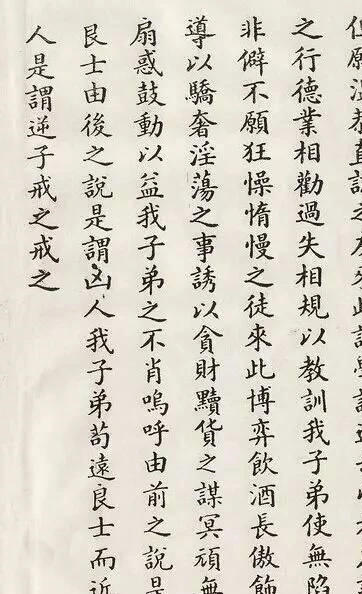 之行德業相勸過失相規以教訓我子弟使無陷
非僻不願狂懆惰慢之徒來此博弈飲酒長傲飾
導以驕奢淫蕩之事誘以貪財黷貨之謀冥頑無
扇惑鼓動以益我子弟之不肖嗚呼由前之說是
良士由後之說是謂凶人我子弟苟遠良士而近
人是謂逆子戒之戒之